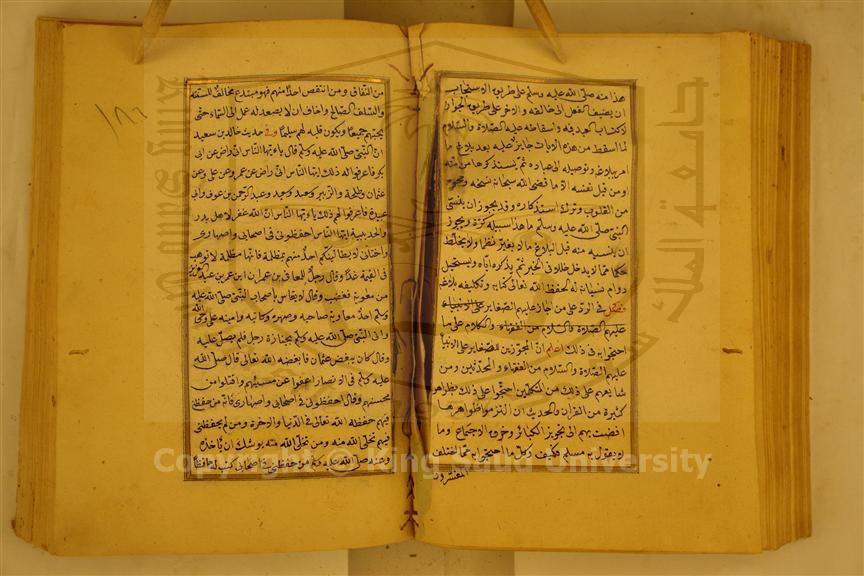 هذا منه صلى الله عليه وسلم على طريق الاستحباب
ان يضيف الفعل الى خالقه والاخر على طريق الجواز
لاكتساب العبد فيه واسقاطه عليه الصلاة والسلام
لما اسقط من هذه الايات جايز عليه بعد بلاغ ما
امر ببلاغه وتوصيله الى عباده ثم يستذكرها من امته
او من قبل نفسه الا ما قضى الله سبحانه نسخه ومحوه
من القلوب وترك استذكاره وقد يجوز ان ينسى
النبي صلى الله عليه وسلم ما هذا سبيله كرة ويجوز
ان ينسيه منه قبل البلاغ ما لا يغير نظما ولا يخلط
حكما مما لا يدخل خللا في الخبر ثم يذكره اياه ويستحيل
دوام نسيانه له لحفظ الله تعالى كتابه وتكليفه بلاغه
فصل في الرد على من جاز عليهم الصغاير على الانبياء
عليهم الصلاة والسلام من الفقهاء والكلام على ما
احتجوا به في ذلك اعلم ان المجوزين للصغاير على الانبيا
عليهم الصلاة والسلام من الفقهاء والمحدثين ومن
شايعهم على ذلك من المتكلمين احتجوا على ذلك بظواهر
كثيرة من القران والحديث ان التزموا ظواهرها
افضت بهم الى تجويز الكبائر وخرق الاجماع وما
لا يقول به مسلم فكيف وكل ما احتجوا به مما اختلف
المفسرون
١٨٦
من النفاق ومن انتقص احدا منهم فهو مبتدع مخالف للسنة
والسلف الصالح واخاف ان لا يصعد له عمل الى السماء حتى
يحبهم جميعا ويكون قلبه لهم سليما وفي حديث خالد بن سعيد
ان النبي صلى الله عليه وسلم قال يا ايها الناس اني راض عن ابي
بكر فاعرفوا له ذلك ايها الناس اني راض عن عمر وعن علي وعن
عثمان وطلحة والزبير وسعد وسعيد وعبد الرحمن بن عوف وابي
عبيدة فاعرفوا لهم ذلك يا ايها الناس ان الله غفر لاهل بدر
والحديبية ايها الناس احفظوني في اصحابي واصهاري
واختاني لا يطالبنكم احد منهم بمظلمة فانها مظلمة لا توهب
في القيمة غدا وقال رجل للمعافى بن عمران اين عمر بن عبد العزيز
من معوية فغضب وقال لا يقاس باصحاب النبي صلى الله عليه
وسلم احد معاوية صاحبه وصهره وكاتبه وامينه على وحي الله
واتى النبي صلى الله عليه وسلم بجنازة رجل فلم يصل عليه
وقال كان يبغض عثمان فابغضه الله تعالى قال صلى الله
عليه وسلم في الانصار اعفوا عن مسيئهم واقبلوا من
محسنهم وقال احفظوني في اصحابي واصهاري فانه من حفظني
فيهم حفظه الله تعالى في الدنيا والاخرة ومن لم يحفظني
فيهم تخلى الله منه ومن تخلى الله منه يوشك ان ياخذه
وعنه صلى الله عليه وسلم من حفظني في اصحابي كنت له حافظا
جامعة الملك سعود
King Saud University
Copyright © King Saud University